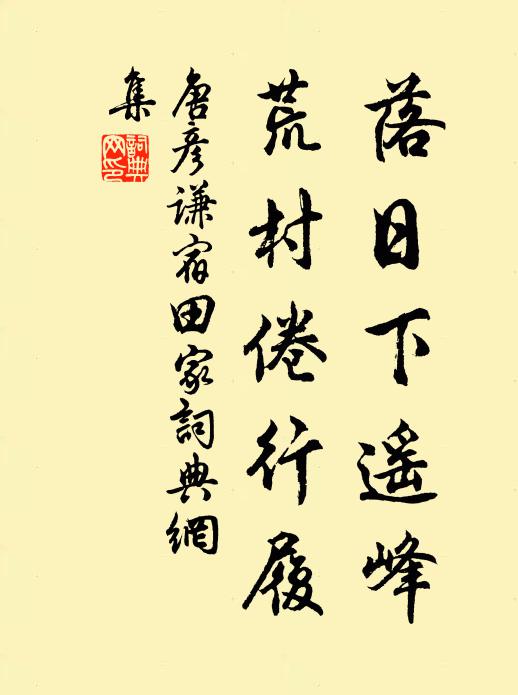 落日下遥峰
荒村倦行履
唐彦谦宿田家詞典網
集
詞典
网印